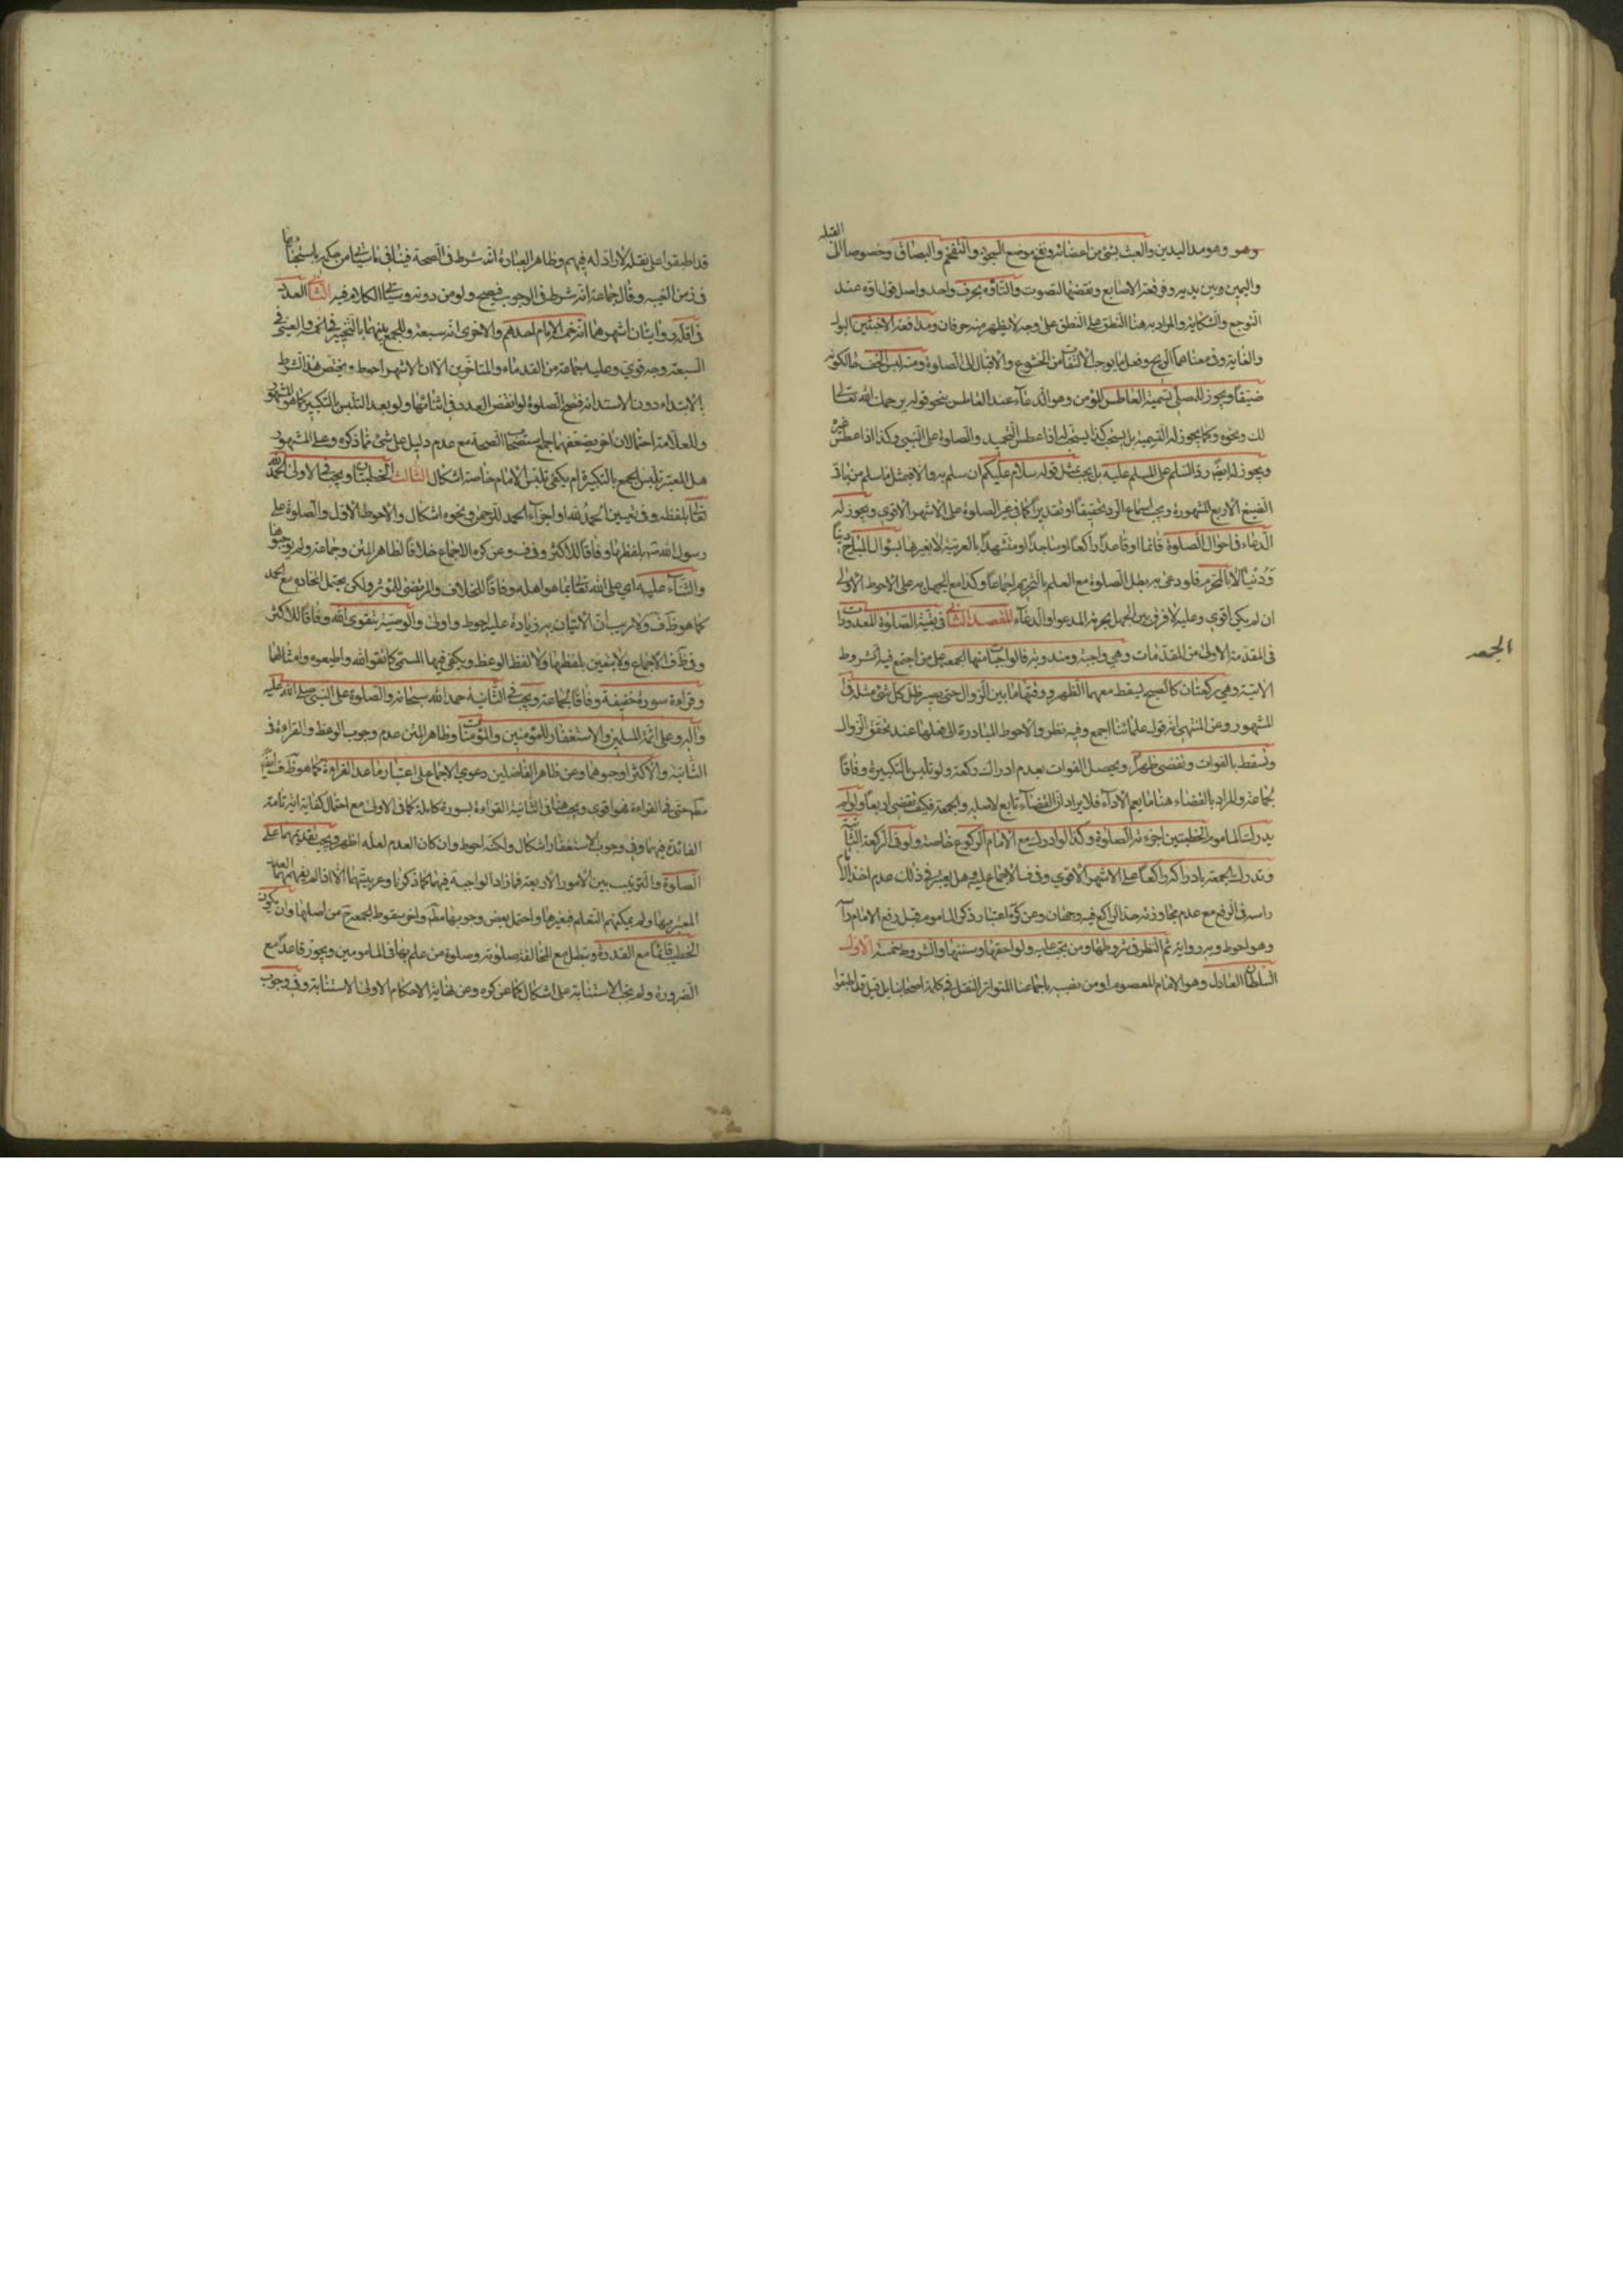 وهو وهو مد اليدين والعبث بشئ من اعضائه ونفخ موضع السجود والتنخم والبصاق وخصوصا الى القبلة
واليمين وبين يديه وفرقعة الاصابع ونقضها لتصوت والتاوه بحرف واحد واصل قول اوه عند
التوجع والشكاية والمراد به هنا النطق على وجه لا يظهر منه حرفان ومدافعة الاخبثين البول
والغايط وفي معناهما الريح وفعل ما يوجب الالتفات من الخشوع والاقبال الى الصلوة ومنه لبس الخف حالكونه
ضيقا ويجوز للمصلي تسمية العاطس المؤمن وهو الدعاء عند العاطس بنحو قوله يرحمك الله تعالى
لك ونحوه وكما يجوز له التسمية بل يستحب كذا يستحب له اذا عطس التحميد والصلوة على النبي وكذا اذا عطس غيره
ويجوز له ايضا رد السلم على المسلم عليه بل يجب بمثل قوله سلام عليكم ان سلم به والا فبمثل ما سلم من باقي
الصيغ الاربع المشهورة ويجب اسماع الرد تحقيقا او تقديرا كما في غير الصلوة على الاشهر الاقوى ويجوز له
الدعاء في احوال الصلوة قائما او قاعدا راكعا او ساجدا او متشهدا بالعربية لا بغيرها بسؤال المباح دينا
ودنيا لا بالمحرم فلو دعى به بطل الصلوة مع العلم بالتحريم اجماعا وكذا مع الجهل به على الاحوط الاولى
ان لم يكن اقوى وعليه لا فرق بين الجهل بحرمة المدعو او الدعاء المقصد الثاني في بقية الصلوة المعدودات
في المقدمة الاولى من المقدمات وهي واجبة ومندوبة فالواجبات منها الجمعة على من اجتمع فيه الشروط
الجمعه
الاتية وهي ركعتان كالصبح يسقط معهما الظهر ووقتها ما بين الزوال حتى يصير ظل كل شئ مثله في
المشهور وعن المنتهى انه قول علمائنا اجمع وفيه نظر والاحوط المبادرة الى فعلها عند تحقق الزوال
وتسقط بالفوات وتقضى ظهرا ويحصل الفوات بعدم ادراك ركعة ولو تلبس بالتكبيرة وفاقا
لجماعة والمراد بالقضاء هنا ما يعم الاداء فلا يراد ان القضاء تابع لاصله والجمعة فكيف تقضى اربعا ولو لم
يدرك الماموم الخطبتين اجزءته الصلوة وكذا لو ادرك مع الامام الركوع خاصة ولو في الركعة الثانية
وتدرك الجمعة بادراكه راكعا على الاشهر الاقوى وفي ف الاجماع عليه وهل يعتبر في ذلك عدم اخذ الامام
راسه في الرفع مع عدم مجاوزته حد الراكع فيه وجهان وعن كره اعتبار ذكر الماموم قبل رفع الامام راسه
وهو احوط وبه رواية ثم النظر في شروطها ومن تجب عليه ولواحقها وسننها والشروط خمسة الاول
السلطان العادل وهو الامام المعصوم او من نصبه باجماعنا المتواتر النقل في كلمة اصحابنا بل قيل قد اطبقوا
قد اطبقوا على نقله لا راد له فيهم وظاهر العبارة انه شرط في الصحة فينافي ما سياتي من حكمه باستحبابها
في زمن الغيبة وقال جماعة انه شرط في الوجوب فيصح ولو من دونه وسياتي الكلام فيه الثاني العدد
في اقله روايتان اشهرهما انه خمسة الامام احدهم والاخرى انه سبعة والجمع بينهما بالتخيير في الخمسة والعيني في
السبعة وجه قوي وعليه جماعة من القدماء والمتاخرين الا ان الاشهر احوط ويختص هذا الشرط
بالابتداء دون الاستدامة فتصح الصلوة لو انفض العدد في اثنائها ولو بعد التلبس بالتكبير كما هو المشهور
وللعلامة احتمالان اخر يضعفهما جميعا استصحاب الصحة مع عدم دليل على شئ مما ذكره وعلى المشهور
هل المعتبر تلبس الجمع بالتكبيرة ام يكفى تلبس الامام خاصة اشكال الثالث الخطبتان ويجب في الاولى الحمد لله
تعالى بلفظه وفي تعيين الحمد لله او اجزاء الحمد للرحمن ونحوه اشكال والاحوط الاول والصلوة على
رسول الله بلفظها وفاقا للاكثر وفي ف وعن كره الاجماع خلافا لظاهر المتن وجماعة ولم يوجبوها
والثناء عليه اي على الله تعالى بما هو اهله وفاقا للخلاف والمرتضى المؤثر ولكن يحتمل اتحاده مع الحمد
كما هو ظ ف ولا ريب ان الاتيان به زيادة عليه احوط واولى والوصية بتقوى الله وفاقا للاكثر
وفي ظ ف الاجماع ولا يتعين بلفظها ولا لفظ الوعظ ويكفي فيها المسمى كاتقوا الله واطيعوه وامثالهما
وقراءة سورة خفيفة وفاقا لجماعة ويجب في الثانية حمد الله سبحانه والصلوة على النبي صلى الله عليه
واله وعلى ائمة المسلمين والاستغفار للمؤمنين والمؤمنات وظاهر المتن عدم وجوب الوعظ والقراءة في
الثانية والاكثر اوجبوهما وعن ظاهر الفاضلين دعوى الاجماع على اعتبار ما عدا القراءة كما هو ظ ف ايضا
حتى في القراءة فهو اقوى ويجب هنا في الثانية القراءة بسورة كاملة كما في الاولى مع احتمال كفاية اية تامة
الفائدة فيهما وفي وجوب الاستغفار اشكال ولكنه احوط وان كان العدم لعله اظهر ويجب تقديمهما على
الصلوة والترتيب بين الامور الاربعة فما زاد الواجبة فيهما كما ذكرنا وعربيتهما الا اذا لم يفهمهما العدد
المعتبر بها ولم يمكنهم التعلم فبغيرها واحتمل بعض وجوبها مط واخر سقوط الجمعة ح من اصلها وان يكون
الخطيب قائما مع القدرة وتبطل مع المخالفة صلوته وصلوة من علم بها في المامومين ويجوز قاعدا مع
الضرورة ولم يجب الاستنابة على اشكال كما عن كره وعن نهاية الاحكام الاولى الاستنابة وفي وجوب